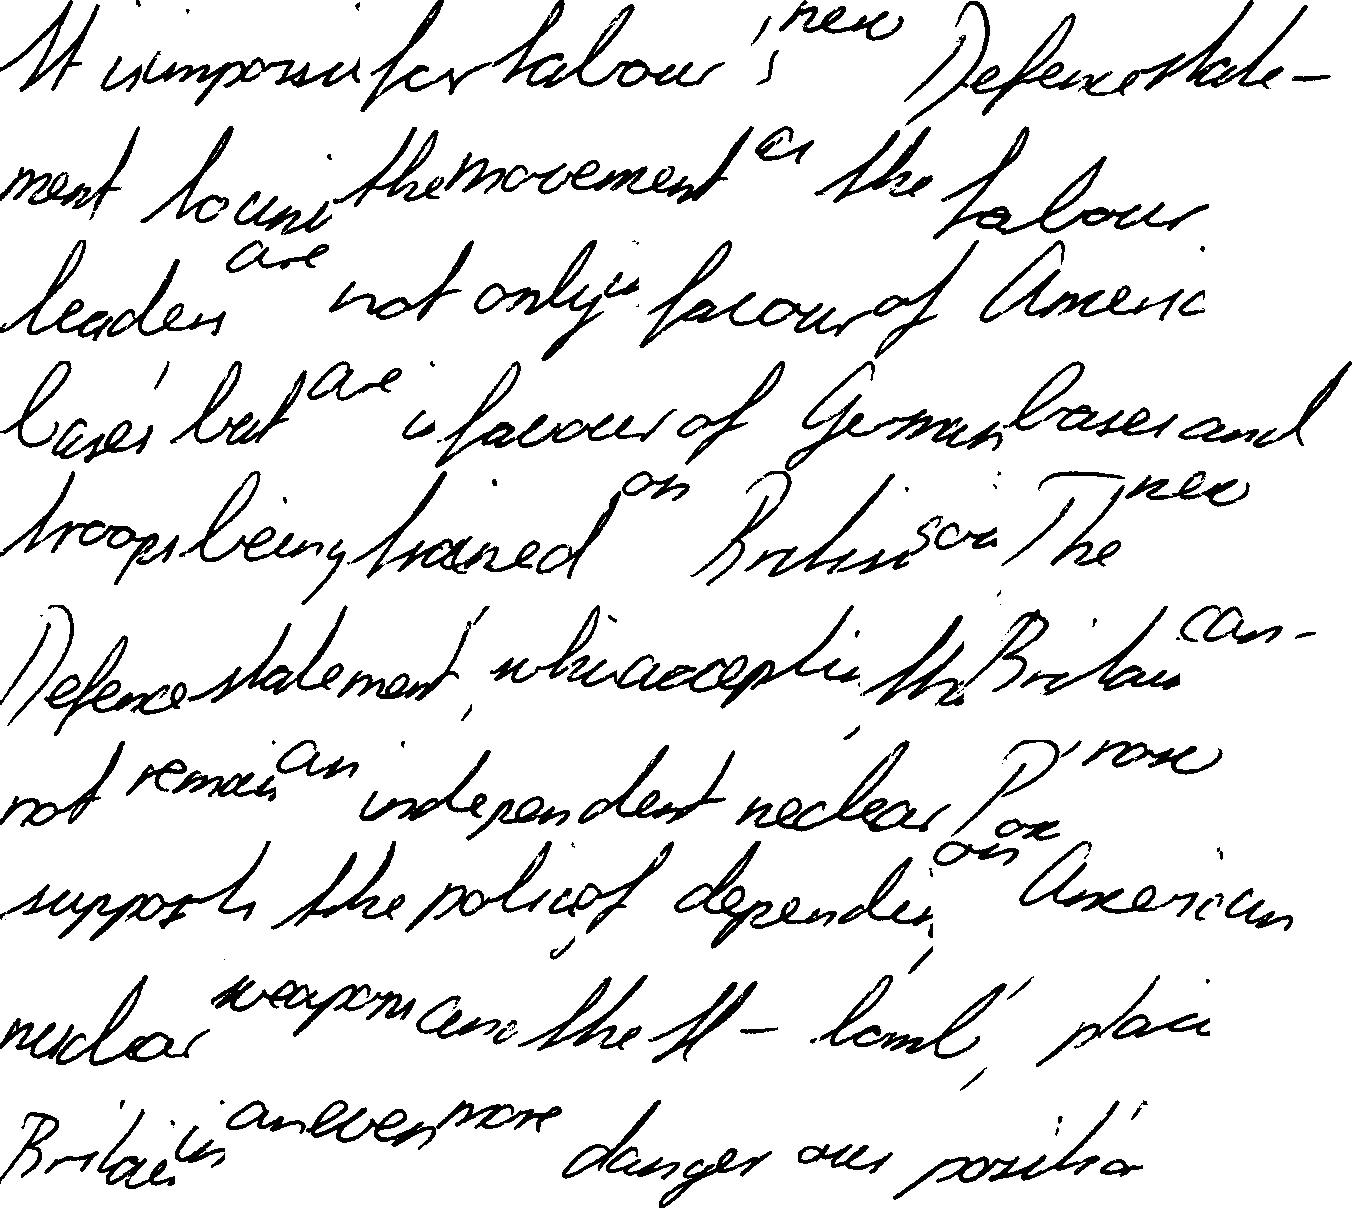 It is impossi for Labour's new Defence state-
ment to uni the movement as the Labour
leaders are not only in favour of Americ
bases but are in favour of German bases and
troops being trained on British soi The new
Defence statement, whi accepting tha Britain can-
not remain an independent nuclear Power now
supports the policy of depending on American
nuclear weapons and the H-bomb, placi
Britain in an even more dangerous position